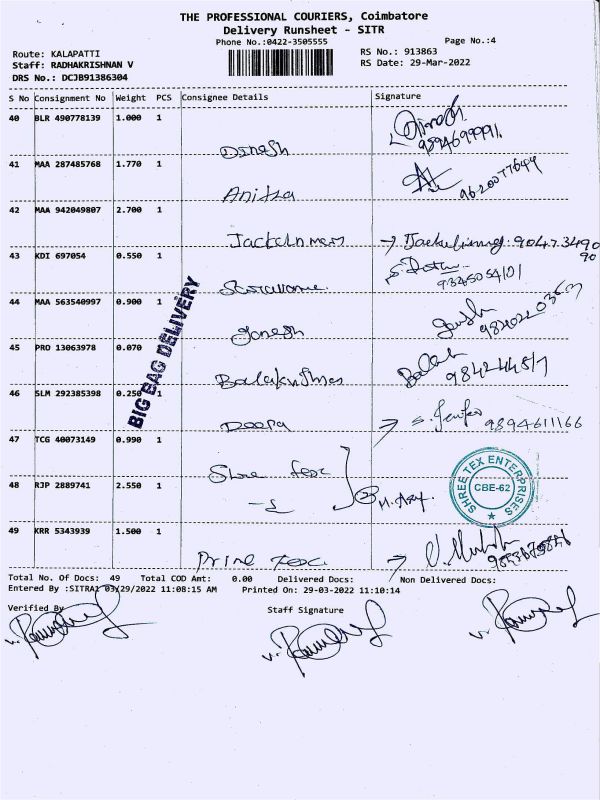 THE PROFESSIONAL COURIERS, Coimbatore
Delivery Runsheet - SITR
Phone No.:0422-3505555
Page No.:4
Route: KALAPATTI
RS No.: 913863
Staff: RADHAKRISHNAN V
RS Date: 29-Mar-2022
DRS No.: DCJB91386304
S No Consignment No Weight PCS Consignee Details Signature
40 BLR 490778139 1.000 1
Dinesh
41 MAA 287485768 1.770 1
Anitha
42 MAA 942049807 2.700 1
43 KDI 697054 0.550 1
44 MAA 563540997 0.900 1
Ganesh
45 PRO 13063978 0.070 1
Balakrishnan
46 SLM 292385398 0.250 1
Deepa 9894611166
47 TCG 40073149 0.990 1
48 RJP 2889741 2.550 1
49 KRR 5343939 1.500 1
BIG BAG DELIVERY
SHREE TEX ENTERPRISES
CBE-62
Total No. Of Docs: 49 Total COD Amt: 0.00 Delivered Docs: Non Delivered Docs:
Entered By :SITRA1 03/29/2022 11:08:15 AM Printed On: 29-03-2022 11:10:14
Verified By
Staff Signature